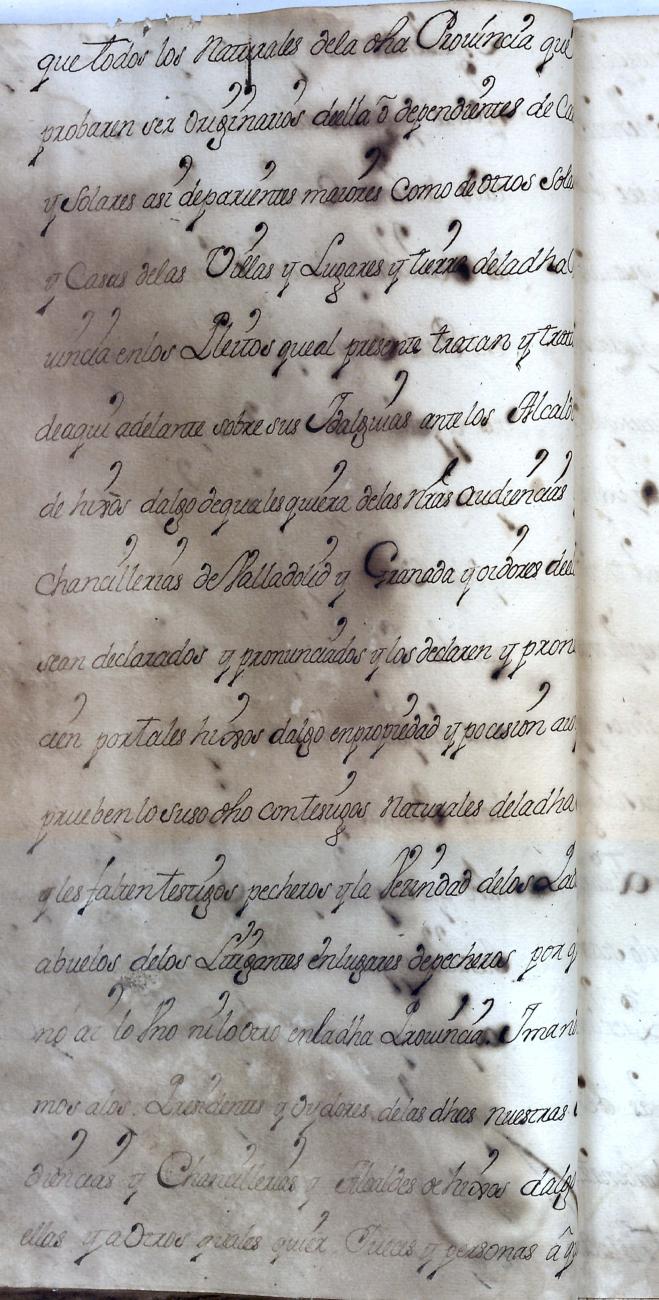 que todos los Naturales dela dha Prouincia que
probaren ser originarios deella o dependientes de
y Solares asi de parientes maiores como de otros
y Casas delas Villas y Lugares y tierra dela dha
uincia en los Pleitos que al presente tratan y
de aqui adelante sobre sus Idalguias ante los
de hixos dalgo de quales quiera delas nras audiencias
Chancillerias de Valladolid y Granada y oidores
sean declarados y pronunciados y los declaren y pron
cien por tales hixos dalgo en propiedad y pocesion
prueben lo suso dho con testigos Naturales dela dha
y les falten testigos pecheros y la Vezindad delos
abuelos delos Litigantes en lugares de pecheros por
no ai lo Vno ni lo otro en la dha Prouincia. I man
mos alos Presidentes y oydores delas dhas nuestras
diencias y Chancillerias y Alcaldes de hixos dalg
ellas y a otros quales quier Jueces y personas a